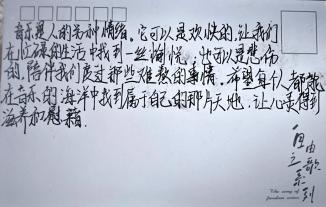 音乐是人的另一种情绪。它可以是欢快的,让我们
在忙碌的生活中找到一丝愉悦,也可以是悲伤
的,陪伴我们度过那些难熬的事情。希望每个人都能
在音乐的海洋中找到属于自己的那片天地,让心灵得到
滋养和慰藉.
自由之歌
系列
The song of
freedom series